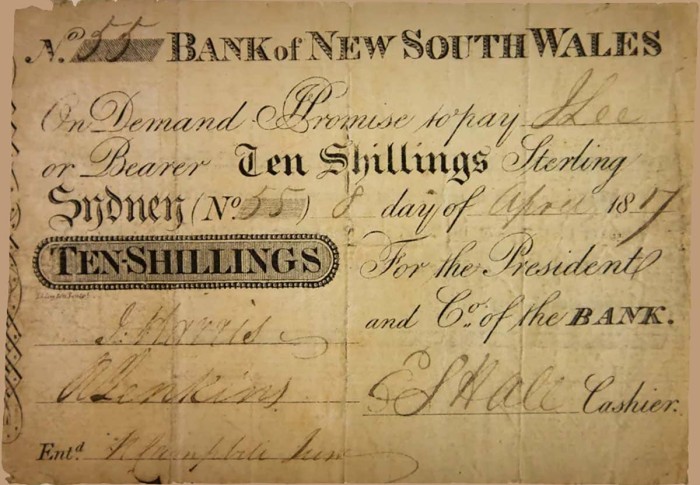 No. 55 BANK of NEW SOUTH WALES
On Demand I Promise to pay J Lee
or Bearer Ten Shillings Sterling
Sydney (No. 55) 8 day of April 1817
TEN-SHILLINGS
For the President
and Co. of the BANK.
J. Harris
Jenkins
E S Hall Cashier.
Entd. R Campbell Junr